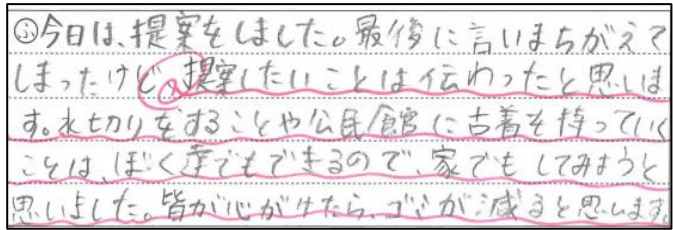 ㋫今日は、提案をしました。最後に言いまちがえて
しまったけど、提案したいことは伝わったと思いま
す。水切りをすることや公民館に古着を持っていく
ことは、ぼく達でもできるので、家でもしてみようと
思いました。皆が心がけたら、ゴミが減ると思います。